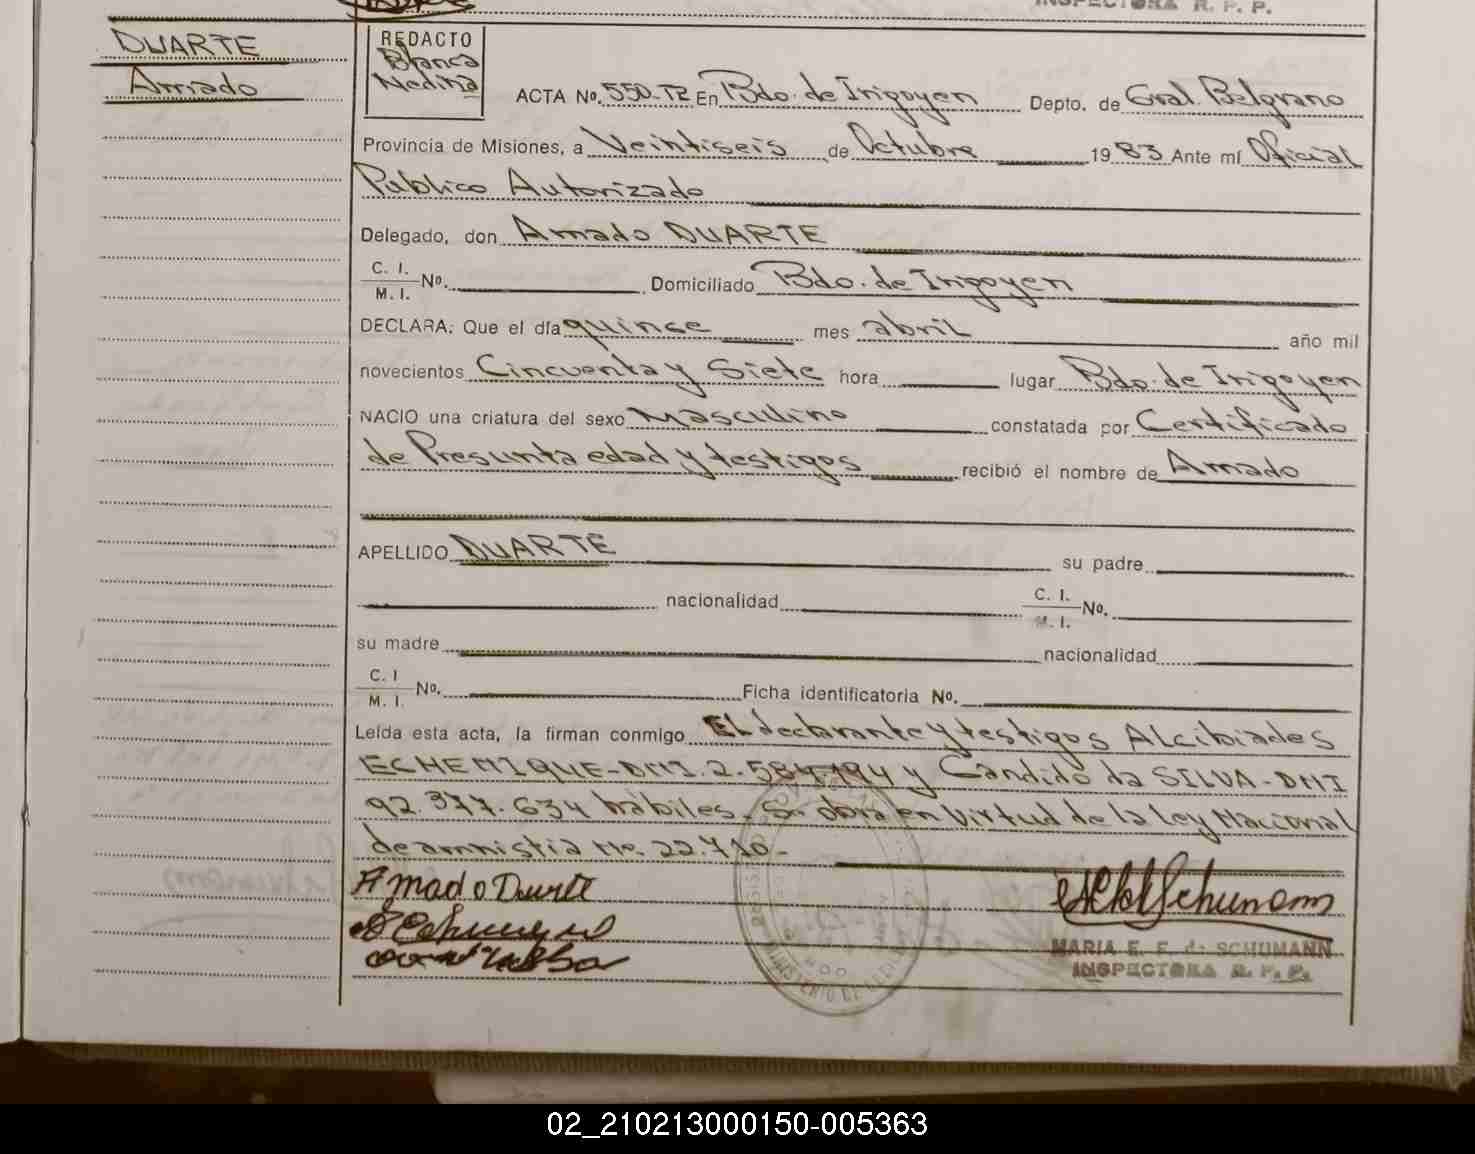 INSPECTORA R. P. P.
DUARTE
Amado
REDACTO
Blanca
Medina
ACTA No. 550-T2 En Bdo. de Irigoyen Depto. de Gral. Belgrano
Provincia de Misiones, a Veintiseis de Octubre 1983 Ante mí Oficial
Publico Autorizado
Delegado, don Amado DUARTE
C. I.
M. I. No. Domiciliado Bdo. de Irigoyen
DECLARA: Que el día quinse mes abril año mil
novecientos Cincuenta y Siete hora lugar Bdo. de Irigoyen
NACIO una criatura del sexo Masculino constatada por Certificado
de Presunta edad y testigos recibió el nombre de Amado
APELLIDO DUARTE su padre
nacionalidad C. I.
M. I. No.
su madre nacionalidad
C. I
M. I. No. Ficha identificatoria No.
Leída esta acta, la firman conmigo El declarante y testigos Alcibiades
ECHEMIQUE-DMI. 2.584.194 y Candido da SILVA-DMI
92.377.634 habiles. S. obra en virtud de la Ley Nacional
de amnistia No. 22.710-
Amado Duarte
MARIA E. F. de SCHUMANN
INSPECTORA R. P. P.
02_210213000150-005363